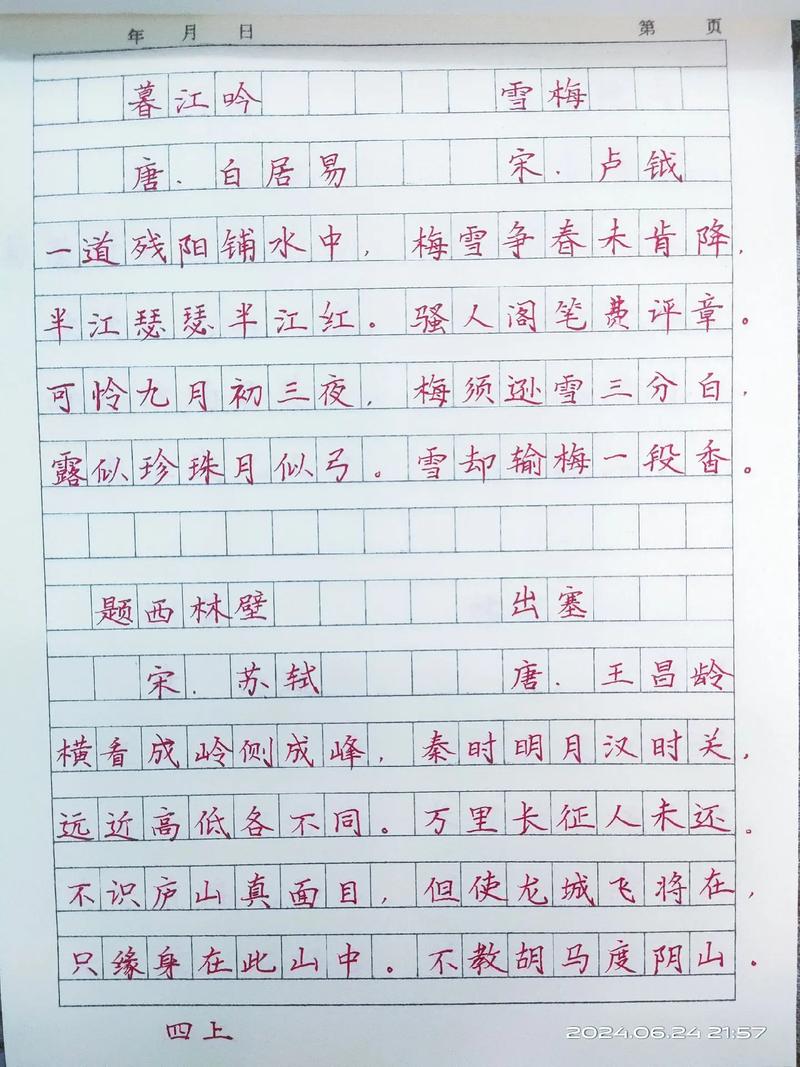 年 月 日 第 页
暮江吟 雪梅
唐．白居易 宋．卢钺
一道残阳铺水中， 梅雪争春未肯降，
半江瑟瑟半江红。 骚人阁笔费评章。
可怜九月初三夜， 梅须逊雪三分白，
露似珍珠月似弓。 雪却输梅一段香。
题西林壁 出塞
宋．苏轼 唐．王昌龄
横看成岭侧成峰， 秦时明月汉时关，
远近高低各不同。 万里长征人未还。
不识庐山真面目， 但使龙城飞将在，
只缘身在此山中。 不教胡马度阴山。
四上
2024.06.24 21:57